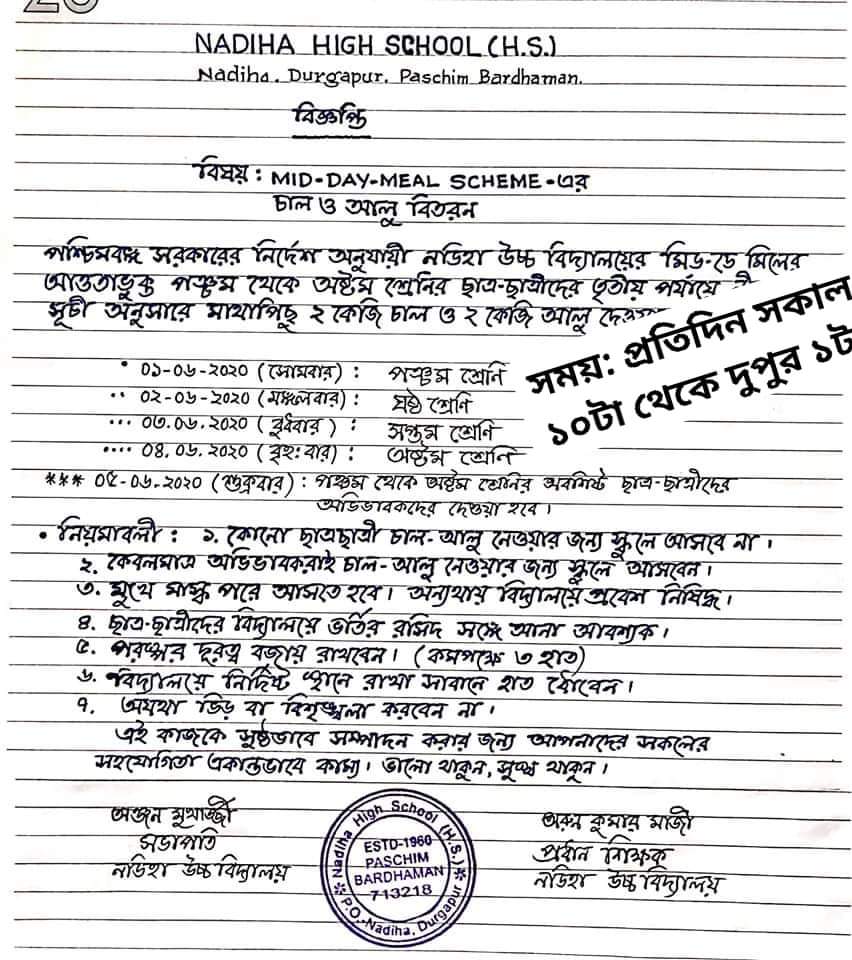 NADIHA HIGH SCHOOL (H.S.)
Nadiha. Durgapur. Paschim Bardhaman.
বিজ্ঞপ্তি
বিষয় : MID-DAY-MEAL SCHEME-এর
চাল ও আলু বিতরন
পশ্চিমবঙ্গ সরকারের নির্দেশ অনুযায়ী নডিহা উচ্চ বিদ্যালয়ের মিড-ডে মিলের
আওতাভুক্ত পঞ্চম থেকে অষ্টম শ্রেনির ছাত্র-ছাত্রীদের তৃতীয় পর্যায়ে
সূচী অনুসারে মাথাপিছু ২ কেজি চাল ও ২ কেজি আলু
সময়: প্রতিদিন সকাল
১০টা থেকে দুপুর ১ট
• ০১-০৬-২০২০ (সোমবার) : পঞ্চম শ্রেণি
•• ০২-০৬-২০২০ (মঙ্গলবার) : ষষ্ঠ শ্রেণি
••• ০৩.০৬.২০২০ (বুধবার) : সপ্তম শ্রেণি
•••• ০৪.০৬.২০২০ (বৃহঃবার) : অষ্টম শ্রেণি
*** ০৫-০৬-২০২০ (শুক্রবার) : পঞ্চম থেকে অষ্টম শ্রেনির অবশিষ্ট ছাত্র-ছাত্রীদের
অভিভাবকদের দেওয়া হবে।
• নিয়মাবলী : ১. কোনো ছাত্রছাত্রী চাল-আলু নেওয়ার জন্য স্কুলে আসবে না।
২. কেবলমাত্র অভিভাবকরাই চাল-আলু নেওয়ার জন্য স্কুলে আসবেন।
৩. মুখে মাস্ক পরে আসতে হবে। অন্যথায় বিদ্যালয়ে প্রবেশ নিষিদ্ধ।
৪. ছাত্র-ছাত্রীদের বিদ্যালয়ে ভর্তির রসিদ সঙ্গে আনা আবশ্যক।
৫. পরস্পর দূরত্ব বজায় রাখবেন। (কমপক্ষে ৩ হাত)
৬. বিদ্যালয়ে নির্দিষ্ট স্থানে রাখা সাবানে হাত ধোবেন।
৭. অযথা ভিড় বা বিশৃঙ্খলা করবেন না।
এই কাজকে সুষ্ঠভাবে সম্পাদন করার জন্য আপনাদের সকলের
সহযোগিতা একান্তভাবে কাম্য। ভালো থাকুন, সুস্থ থাকুন।
অঞ্জন মুখার্জ্জী
সভাপতি
নডিহা উচ্চ বিদ্যালয়
Nadiha High School (H.S.)
ESTD-1960
PASCHIM
BARDHAMAN
713218
P.O.-Nadiha, Durgapur
অরুন কুমার মাজী
প্রধান শিক্ষক
নডিহা উচ্চ বিদ্যালয়